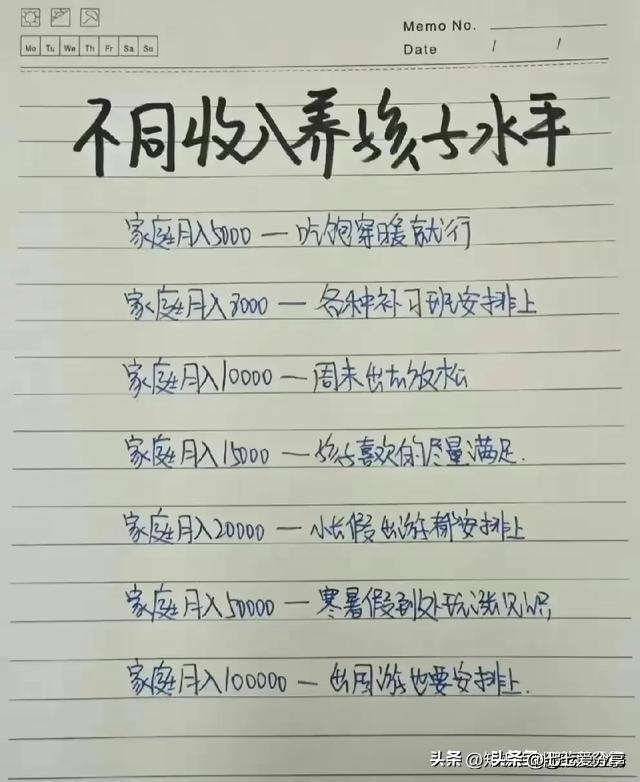 Memo No.
Mo Tu We Th Fr Sa Su
Date / /
不同收入养孩子水平
家庭月入5000 — 吃饱穿暖就行
家庭月入8000 — 各种补习班安排上
家庭月入10000 — 周末出去放松
家庭月入15000 — 孩子喜欢的尽量满足.
家庭月入20000 — 小长假出游都安排上
家庭月入50000 — 寒暑假到处玩涨见识
家庭月入100000 — 出国游也要安排上.
头条 @七七爱分享